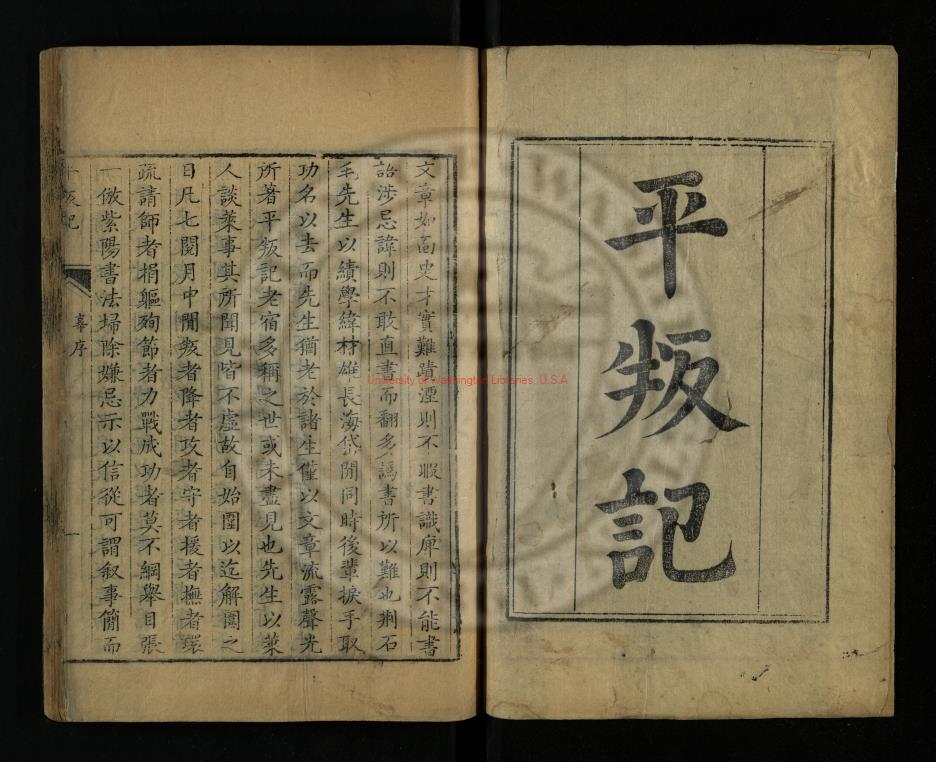 平叛記
文章如面史才實難蹟湮則不暇書識庳則不能書
詒涉忌諱則不敢直書而翻多譌書所以難也荆石
毛先生以績學緯材雄長海岱間同時後輩捩手取
功名以去而先生猶老於諸生僅以文章流露聲光
所著平叛記老宿多稱之世或未盡見也先生以萊
人談萊事其所聞見皆不虛故自始圍以迄解圍之
日凡七閱月中間叛者降者攻者守者援者撫者環
疏請師者捐軀殉節者力戰成功者莫不綱舉目張
一倣紫陽書法埽除嫌忌示以信從可謂叙事簡而
平叛記
序
一
University of Washington Libraries, U.S.A